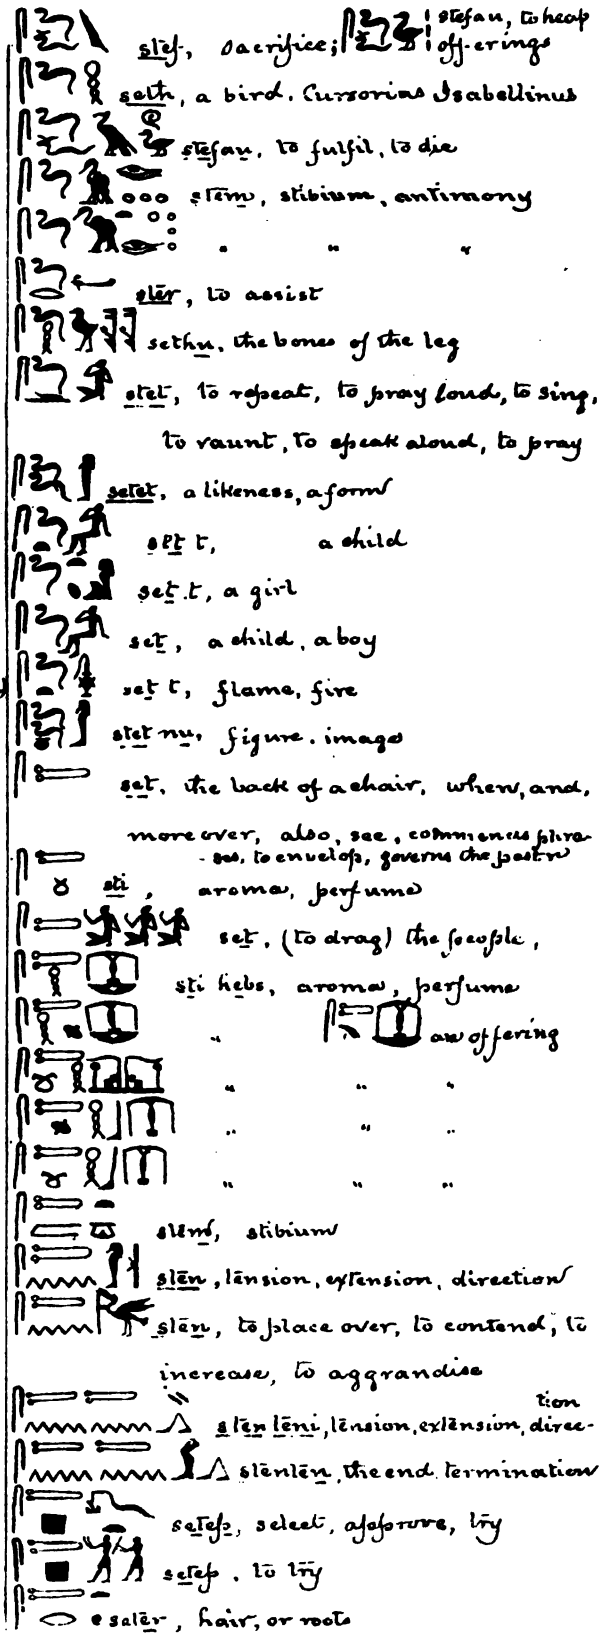 stef, sacrifice; stefau, to heap
offerings
seth, a bird. Cursorias Isabellinus
stefau, to fulfil, to die
stem, stibium, antimony
" " "
ster, to assist
sethu, the bones of the leg
stet, to repeat, to pray loud, to sing,
to vaunt, to speak aloud, to pray
setet, a likeness, a form
set t, a child
set.t, a girl
set, a child, a boy
set t, flame, fire
stet nu, figure. image
set, the back of a chair, when, and,
more over, also, see, commences phra-
-ses, to envelop, governs the past
sti, aroma, perfume
set, (to drag) the people,
sti hebs, aroma, perfume
" an offering
" " "
" " "
" " "
stem, stibium
sten, tension, extension, direction
sten, to place over, to contend, to
increase, to aggrandise
sten teni, tension, extension, direc-
tion
stenten, the end. termination
setep, select, approve, try
setep, to try
sater, hair, or roots